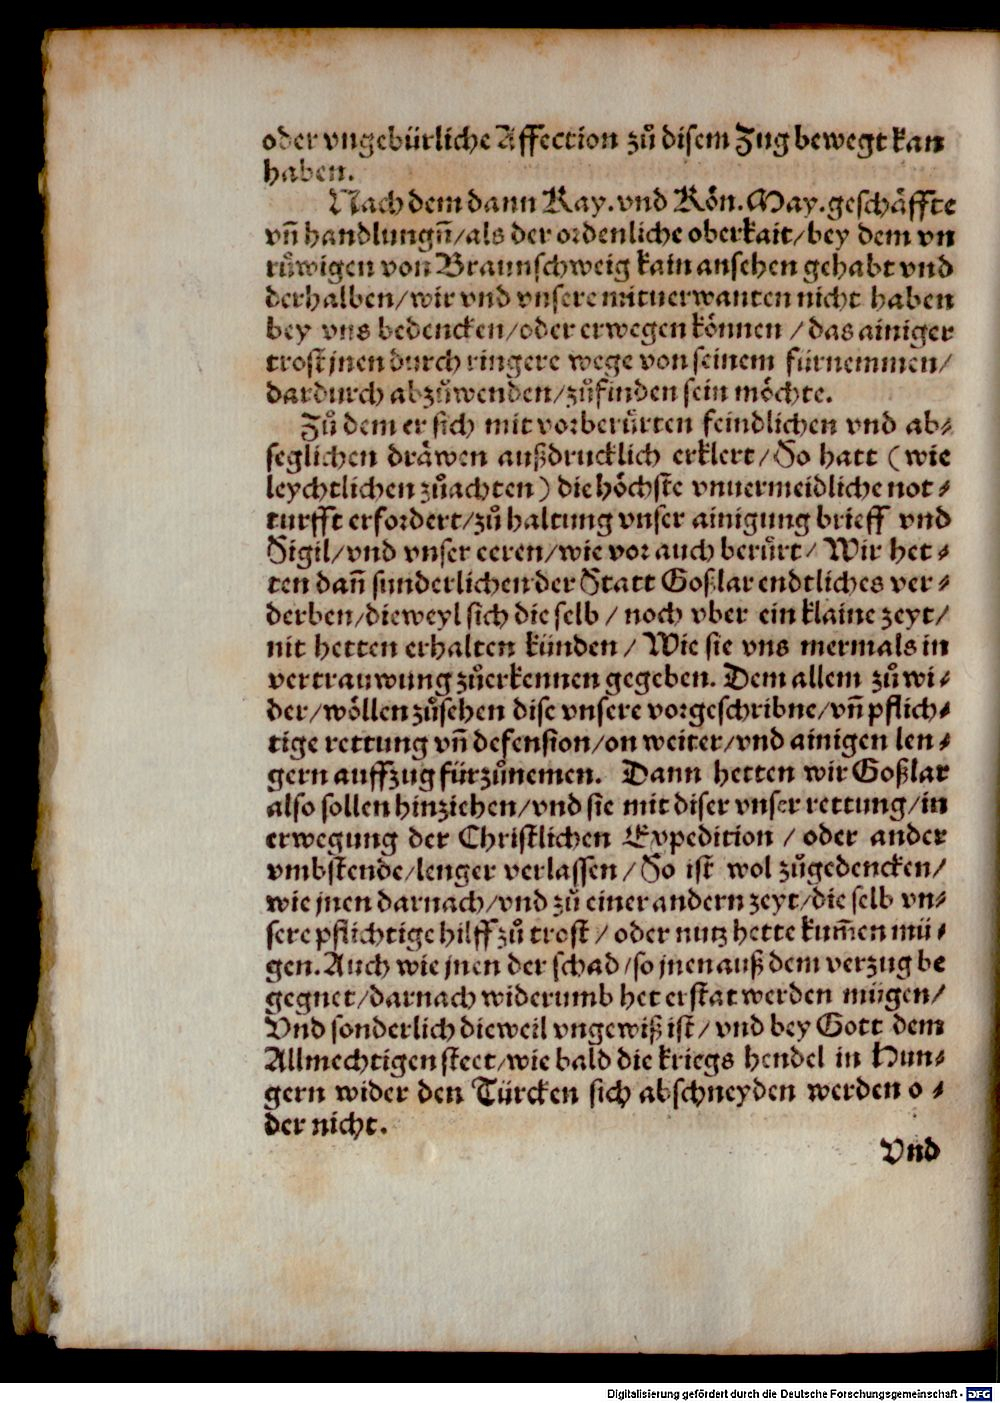 oder vngebürliche Affection zů disem Zug bewegt kan
haben.
Nach dem dann Kay. vnd Kön. May. geschäffte
vñ handlungñ/als der ordenliche oberkait/bey dem vn
růwigen von Braunschweig kain ansehen gehabt vnd
derhalben/wir vnd vnsere mituerwanten nicht haben
bey vns bedencken/oder erwegen können /das ainiger
trost jnen durch ringere wege von seinem fürnemmen/
dardurch abzůwenden/zůfinden sein möchte.
Zů dem er sich mit vorberůrten feindlichen vnd ab⸗
seglichen dräwen außdrucklich erklert/So hatt (wie
leychtlichen zůachten) die höchste vnuermeidliche not⸗
turfft erfordert/zů haltung vnser ainigung brieff vnd
Sigil/vnd vnser eeren/wie vor auch berůrt/ Wir het⸗
ten dañ sunderlichen der Statt Goßlar endtliches ver⸗
derben/dieweyl sich die selb / noch vber ein klaine zeyt/
nit hetten erhalten künden / Wie sie vns mermals in
vertrauwung zůerkennen gegeben. Dem allem zů wi⸗
der/wöllen zůsehen dise vnsere vorgeschribne/vñ pflich⸗
tige rettung vñ defension/on weiter/vnd ainigen len⸗
gern auffzug fürzůnemen. Dann hetten wir Goßlar
also sollen hinziehen/vnd sie mit diser vnser rettung/in
erwegung der Christlichen Expedition / oder ander
vmbstende/lenger verlassen/So ist wol zůgedencken/
wie jnen darnach/vnd zů einer andern zeyt/die selb vn⸗
sere pflichtige hilff zů trost / oder nutz hette kum̃en mü⸗
gen. Auch wie jnen der schad/so jnen auß dem verzug be
gegnet/darnach widerumb het erstat werden mügen/
Vnd sonderlich dieweil vngewiß ist/ vnd bey Gott dem
Allmechtigen steet/wie bald die kriegs hendel in Hun⸗
gern wider den Türcken sich abschneyden werden o⸗
der nicht.
Vnd
Digitalisierung gefördert durch die Deutsche Forschungsgemeinschaft - DFG